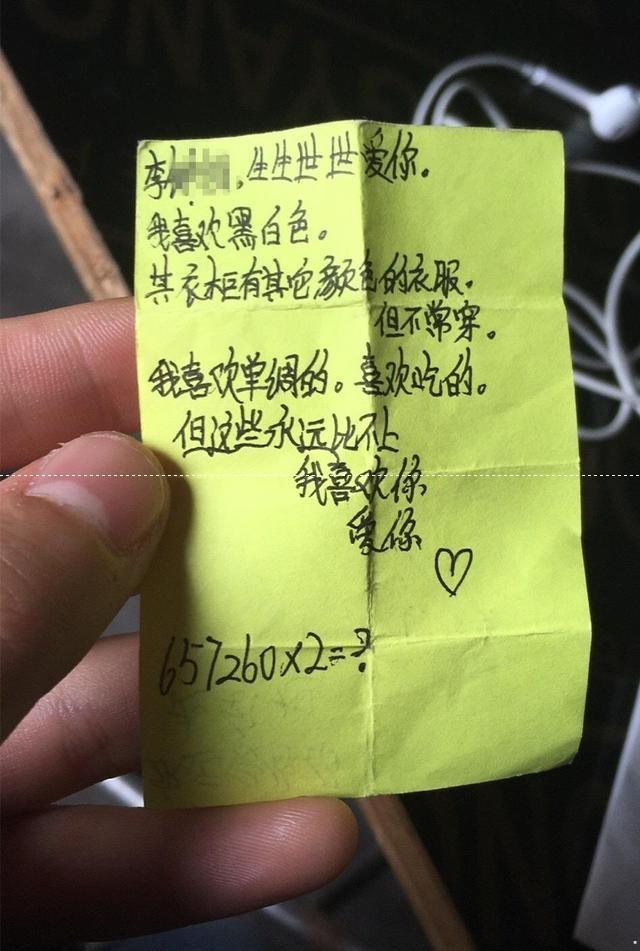 李 ,生生世世爱你。
我喜欢黑白色。
其衣柜有其它颜色的衣服。
但不常穿。
我喜欢单绸的。喜欢吃的。
但这些永远比不上
我喜欢你
爱你
♡
657260×2=?